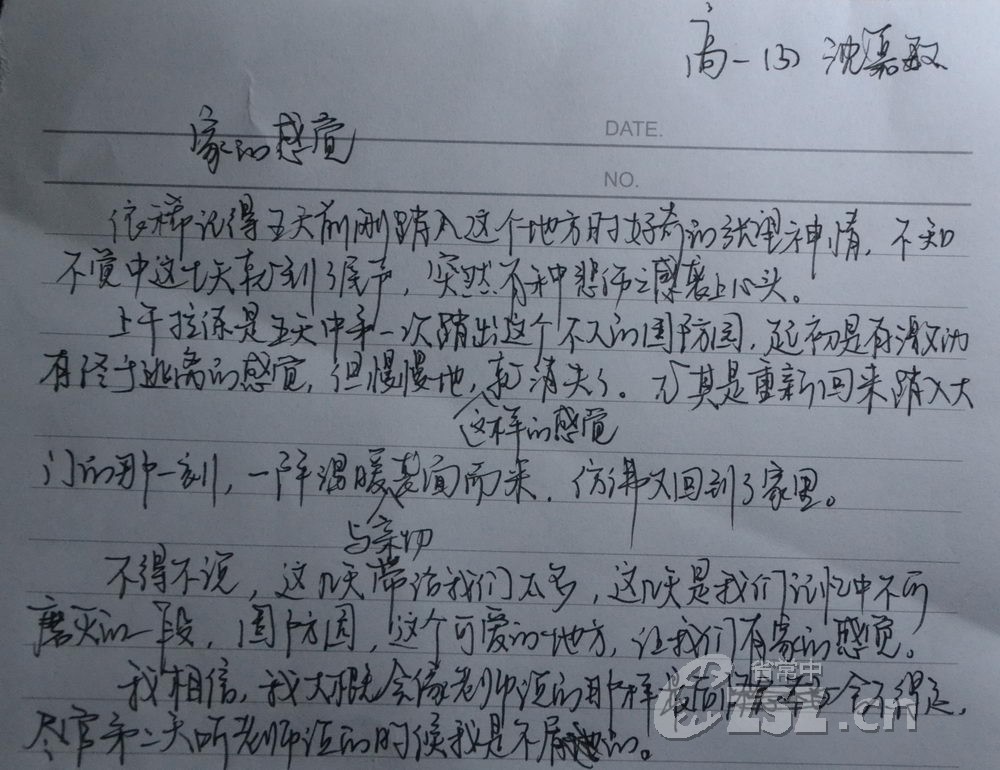 高一(3) 沈嘉敏
DATE.
家的感觉
NO.
依稀记得五天前刚踏入这个地方时好奇的张望神情，不知
不觉中这七天就到了尾声，突然有种悲伤之感袭上心头。
上午拉练是五天中第一次踏出这个不大的国防园，起初是有激动
有终于逃离的感觉，但慢慢地，就消失了。尤其是重新回来踏入大
这样的感觉
门的那一刻，一阵温暖袭面而来，仿佛又回到了家里。
与亲切
不得不说，这几天带给我们太多，这几天是我们记忆中不可
磨灭的一段，国防园，这个可爱的地方，让我们有家的感觉。
我相信，我大概会像老师说的那样最后舍不得走，
尽管第二天听老师说的时候我是不屑的。
省常中